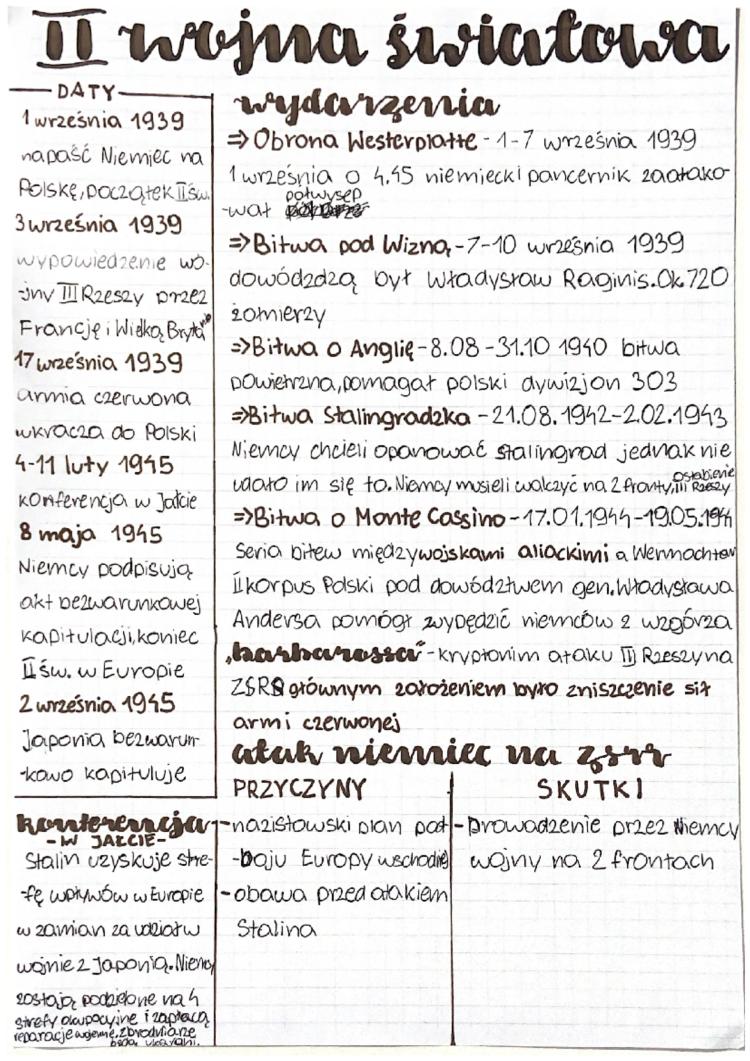 II wojna światowa
DATY
1 września 1939
napaść Niemiec na
Polskę, początek II św.
3 września 1939
wypowiedzenie wo-
-jny III Rzeszy przez
Francję i Wielką Brytanię
17 września 1939
armia czerwona
wkracza do Polski
4-11 luty 1945
konferencja w Jałcie
8 maja 1945
Niemcy podpisują
akt bezwarunkowej
kapitulacji, koniec
II św. w Europie
2 września 1945
Japonia bezwarun-
-kowo kapituluje
konferencja
-W JAŁCIE-
Stalin uzyskuje stre-
-fę wpływów w Europie
w zamian za udział w
wojnie z Japonią. Niemcy
zostają podzielone na 4
strefy okupacyjne i zapłacą
reparacje wojenne, zbrodniarze
będą ukarani.
wydarzenia
⇒ Obrona Westerplatte - 1-7 września 1939
1 września o 4.45 niemiecki pancernik zaatako-
-wał półwysep
⇒ Bitwa pod Wizną - 7-10 września 1939
dowódzdzą był Władysław Raginis. Ok. 720
żołnierzy
⇒ Bitwa o Anglię - 8.08 - 31.10 1940 bitwa
powietrzna, pomagał polski dywizjon 303
⇒ Bitwa Stalingradzka - 21.08.1942-2.02.1943
Niemcy chcieli opanować stalingrad jednak nie
udało im się to. Niemcy musieli walczyć na 2 fronty, osłabienie III Rzeszy
⇒ Bitwa o Monte Cassino - 17.01.1944-19.05.1944
Seria bitew między wojskami aliackimi a Wermachtem
II korpus Polski pod dowództwem gen. Władysława
Andersa pomógł wypędzić niemców z wzgórza
„barbarossa" - kryptonim ataku III Rzeszy na
ZSRR głównym założeniem było zniszczenie sił
armi czerwonej
atak niemiec na zsrr
PRZYCZYNY
-nazistowski plan pod-
-boju Europy wschodniej
-obawa przed atakiem
Stalina
SKUTKI
-prowadzenie przez Niemcy
wojny na 2 frontach